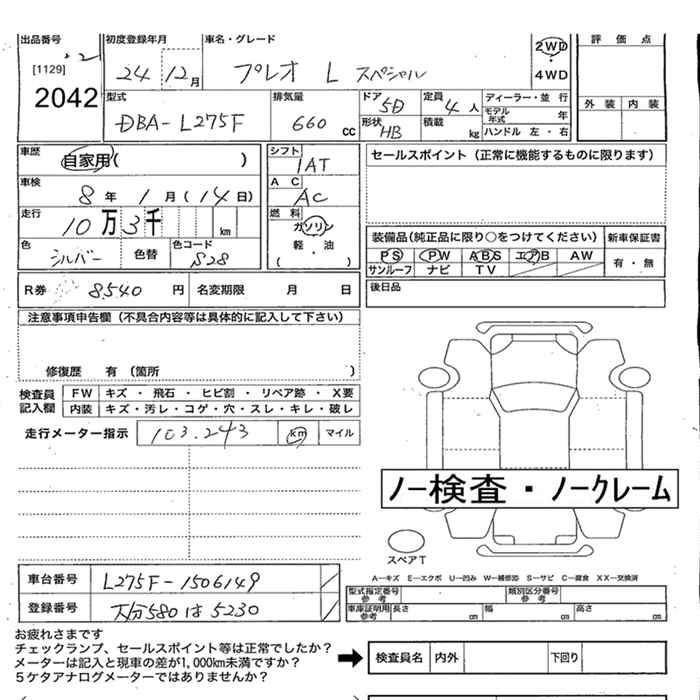 出品番号 初度登録年月 車名・グレード 2WD ・ 4WD 評価点
[1129] 2042 24 12月 プレオ L スペシャル 外装 内装
型式 排気量 ドア 5D 定員 4人 ディーラー・並行
DBA-L275F 660 cc 形状 HB 積載 kg モデル年式 年
ハンドル 左・右
車歴 自家用( ) シフト 1AT セールスポイント（正常に機能するものに限ります）
車検 8年 1月(14日) AC AC
走行 10万3千 km 燃料 ガソリン 軽・油 ( ・ )
色 シルバー 色替 色コード S28
装備品(純正品に限り○をつけてください) 新車保証書
PS PW ABS エアB AW 有・無
サンルーフ ナビ TV
R券 8540円 名変期限 月 日 後日品
注意事項申告欄（不具合内容等は具体的に記入して下さい）
修復歴 有（箇所 ）
検査員記入欄 FW キズ・飛石・ヒビ割・リペア跡・X要
内装 キズ・汚レ・コゲ・穴・スレ・キレ・破レ
走行メーター指示 103.243 km マイル
ノー検査・ノークレーム
スペアT
A−キズ E−エクボ U−凹み W−補修跡 S−サビ C−腐食 XX−交換済
車台番号 L275F-1506149 型式指定番号 参考 類別区分番号 参考
登録番号 大分580は5230 車庫証明用 参考 長さ cm 幅 cm 高さ cm
お疲れさまです
チェックランプ、セールスポイント等は正常でしたか？
メーターは記入と現車の差が1,000km未満ですか？
5ケタアナログメーターではありませんか？
検査員名 内外 下回り